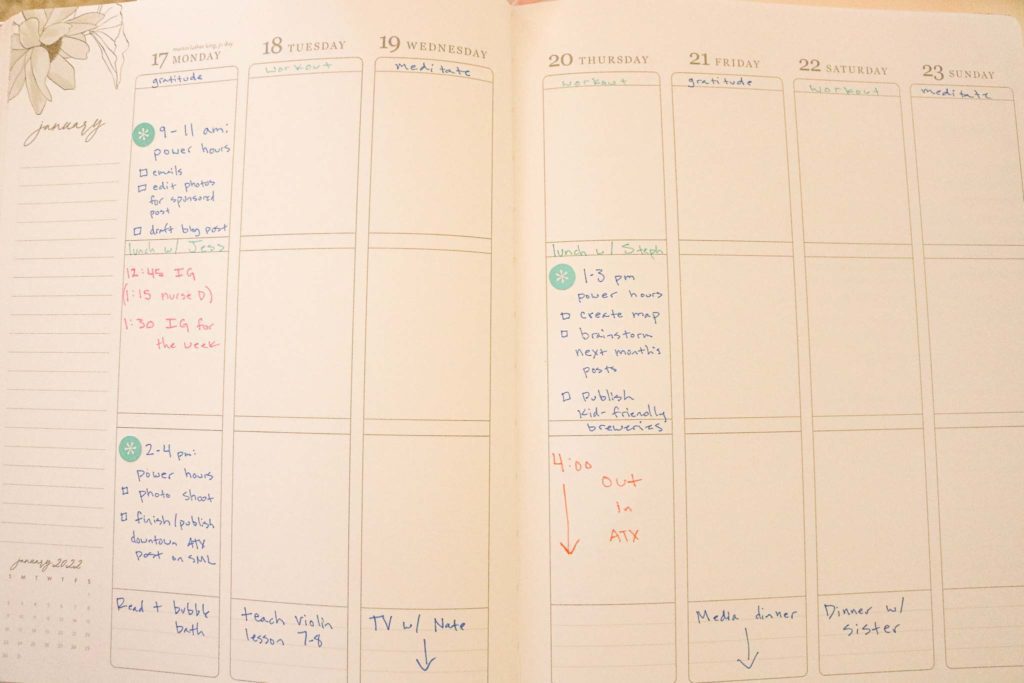 january
january 2022
S M T W T F S
martin luther king, jr. day
17 MONDAY
gratitude
9-11 am:
power hours
emails
edit photos
for sponsored
post
draft blog post
lunch w/ Jess
12:45 IG
(1:15 nurse D)
1:30 IG for
the week
2-4 pm:
power hours
photo shoot
finish/publish
downtown ATX
post on SML
Read + bubble
bath
18 TUESDAY
workout
teach violin
lesson 7-8
19 WEDNESDAY
meditate
TV w/ Nate
20 THURSDAY
workout
lunch w/ Steph
1-3 pm
power hours
create map
brainstorm
next month's
posts
Publish
Kid-friendly
breweries
4:00
out
in
ATX
21 FRIDAY
gratitude
Media dinner
22 SATURDAY
workout
Dinner w/
sister
23 SUNDAY
meditate